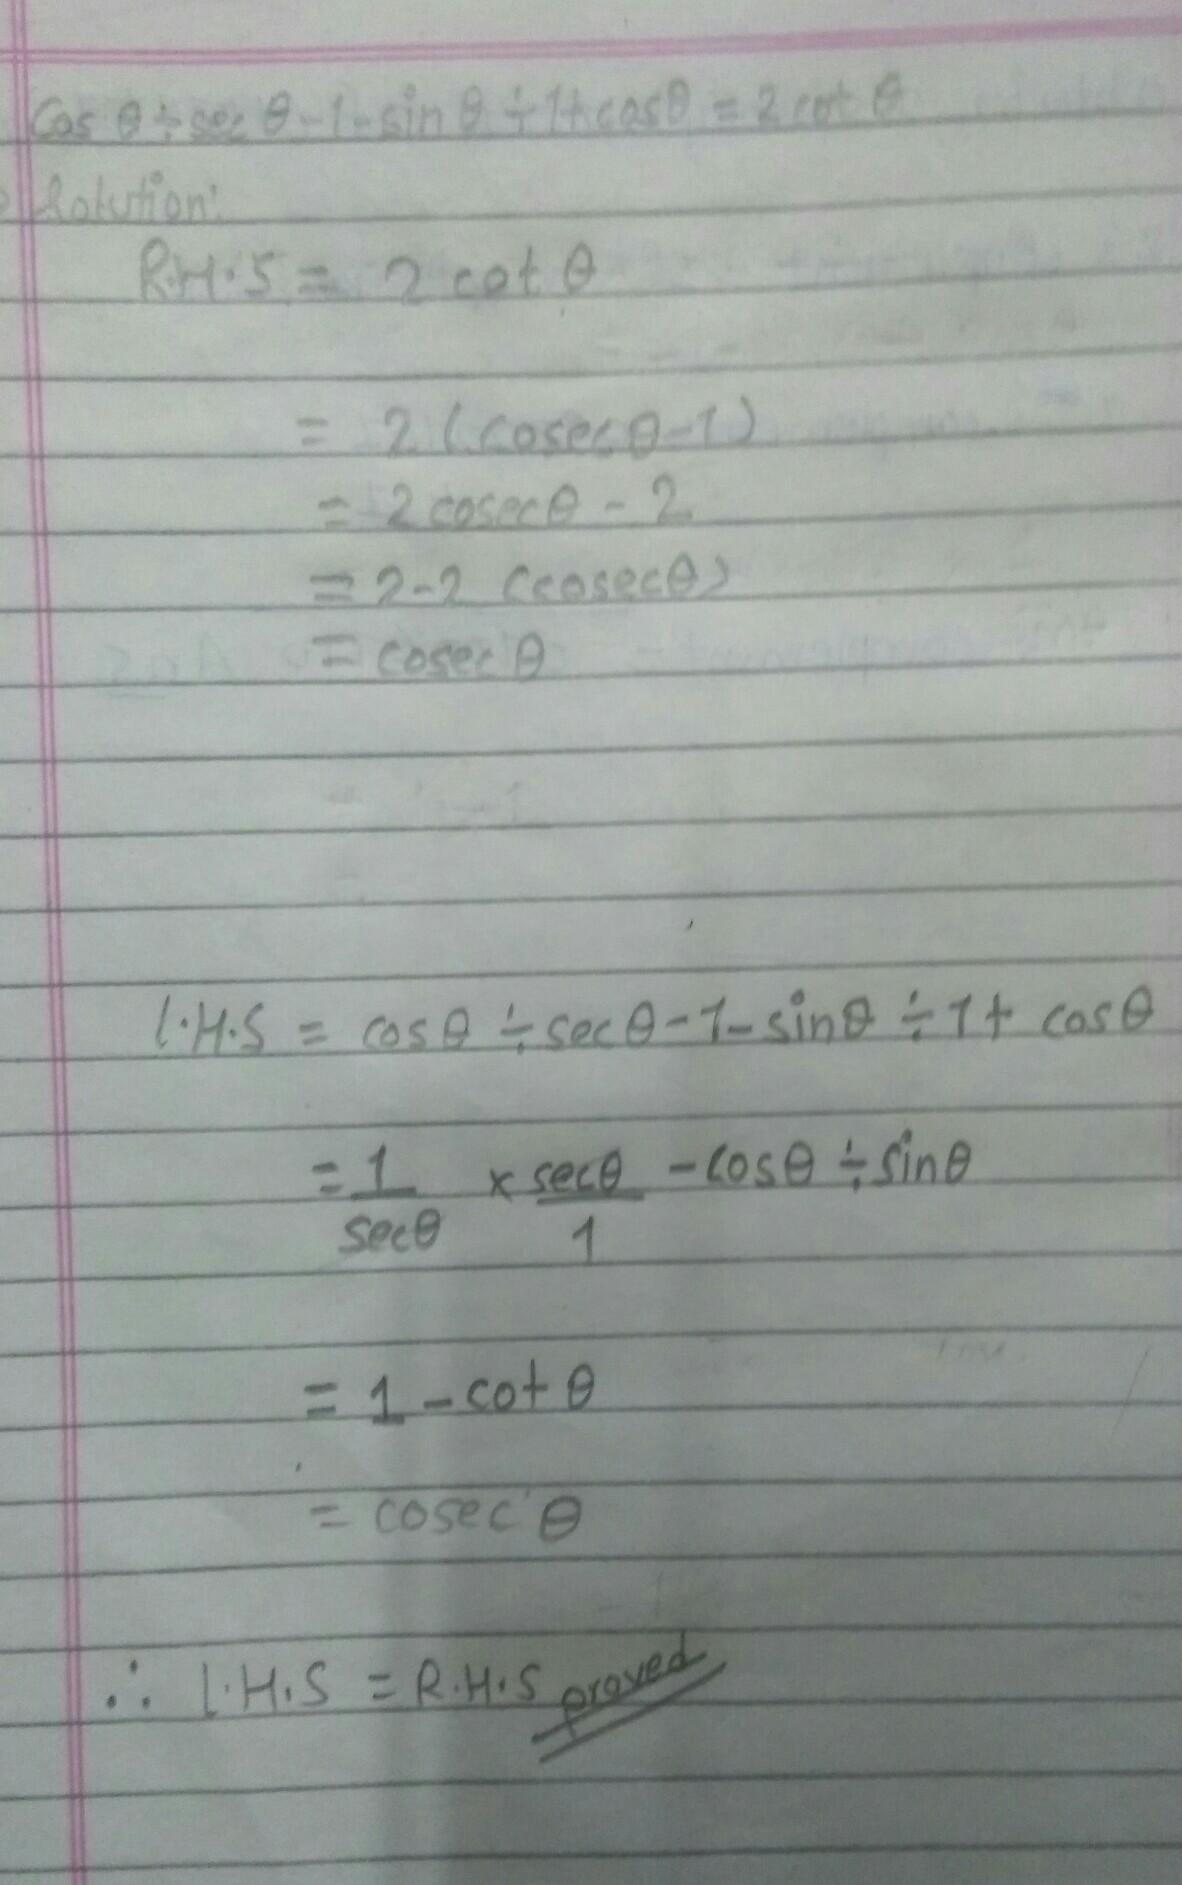 Cos θ ÷ sec θ - 1 - sin θ ÷ 1 + cosθ = 2 cot θ
Solution:
R.H.S = 2 cot θ
= 2 (cosec θ - 1)
= 2 cosec θ - 2
= 2 - 2 (cosec θ)
= cosec θ
L.H.S = cos θ ÷ sec θ - 1 - sin θ ÷ 1 + cos θ
= 1/secθ × secθ/1 - cos θ ÷ sin θ
= 1 - cot θ
= cosec θ
∴ L.H.S = R.H.S proved